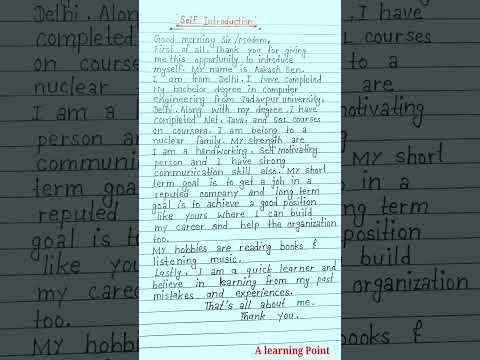 Self Introduction
Good morning Sir/madam,
First of all, Thank you for giving
me this opportunity to introduce
myself. My name is Aakash Sen.
I am from Delhi. I have completed
my bachelor degree in computer
engineering from Jadavpur university,
Delhi. Along with my degree, I have
completed .Net, Java, and SQL courses
on coursera. I am belong to a
nuclear family. My strength are
I am a handworking, Self motivating
person and I have strong
communication skill also. My short
term goal is to get a job in a
reputed company and long term
goal is to achieve a good position
like yours where I can build
my career and help the organization
too.
My hobbies are reading books &
listening music.
Lastly, I am a quick learner and
believe in learning from my past
mistakes and experiences.
That's all about me.
Thank you.
A learning Point